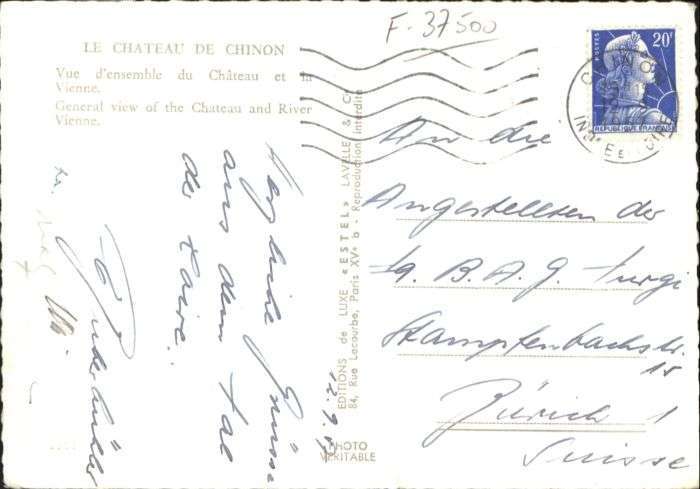 F-37500
LE CHATEAU DE CHINON
Vue d'ensemble du Château et la
Vienne.
General view of the Chateau and River
Vienne.
20F
REPUBLIQUE FRANÇAISE
CHINON
INDRE-ET-LOIRE
An die
Angestellten der
Fa. B.A.G. Turgi
Stampfenbachstr.
15
Zürich 1
Suisse
12.9.
Herzliche Grüsse
aus dem Tal
der Loire.
EDITIONS de LUXE «ESTEL» LAVELLE & Cie
84, Rue Lecourbe, Paris XVe b - Reproduction interdite
PHOTO
VERITABLE